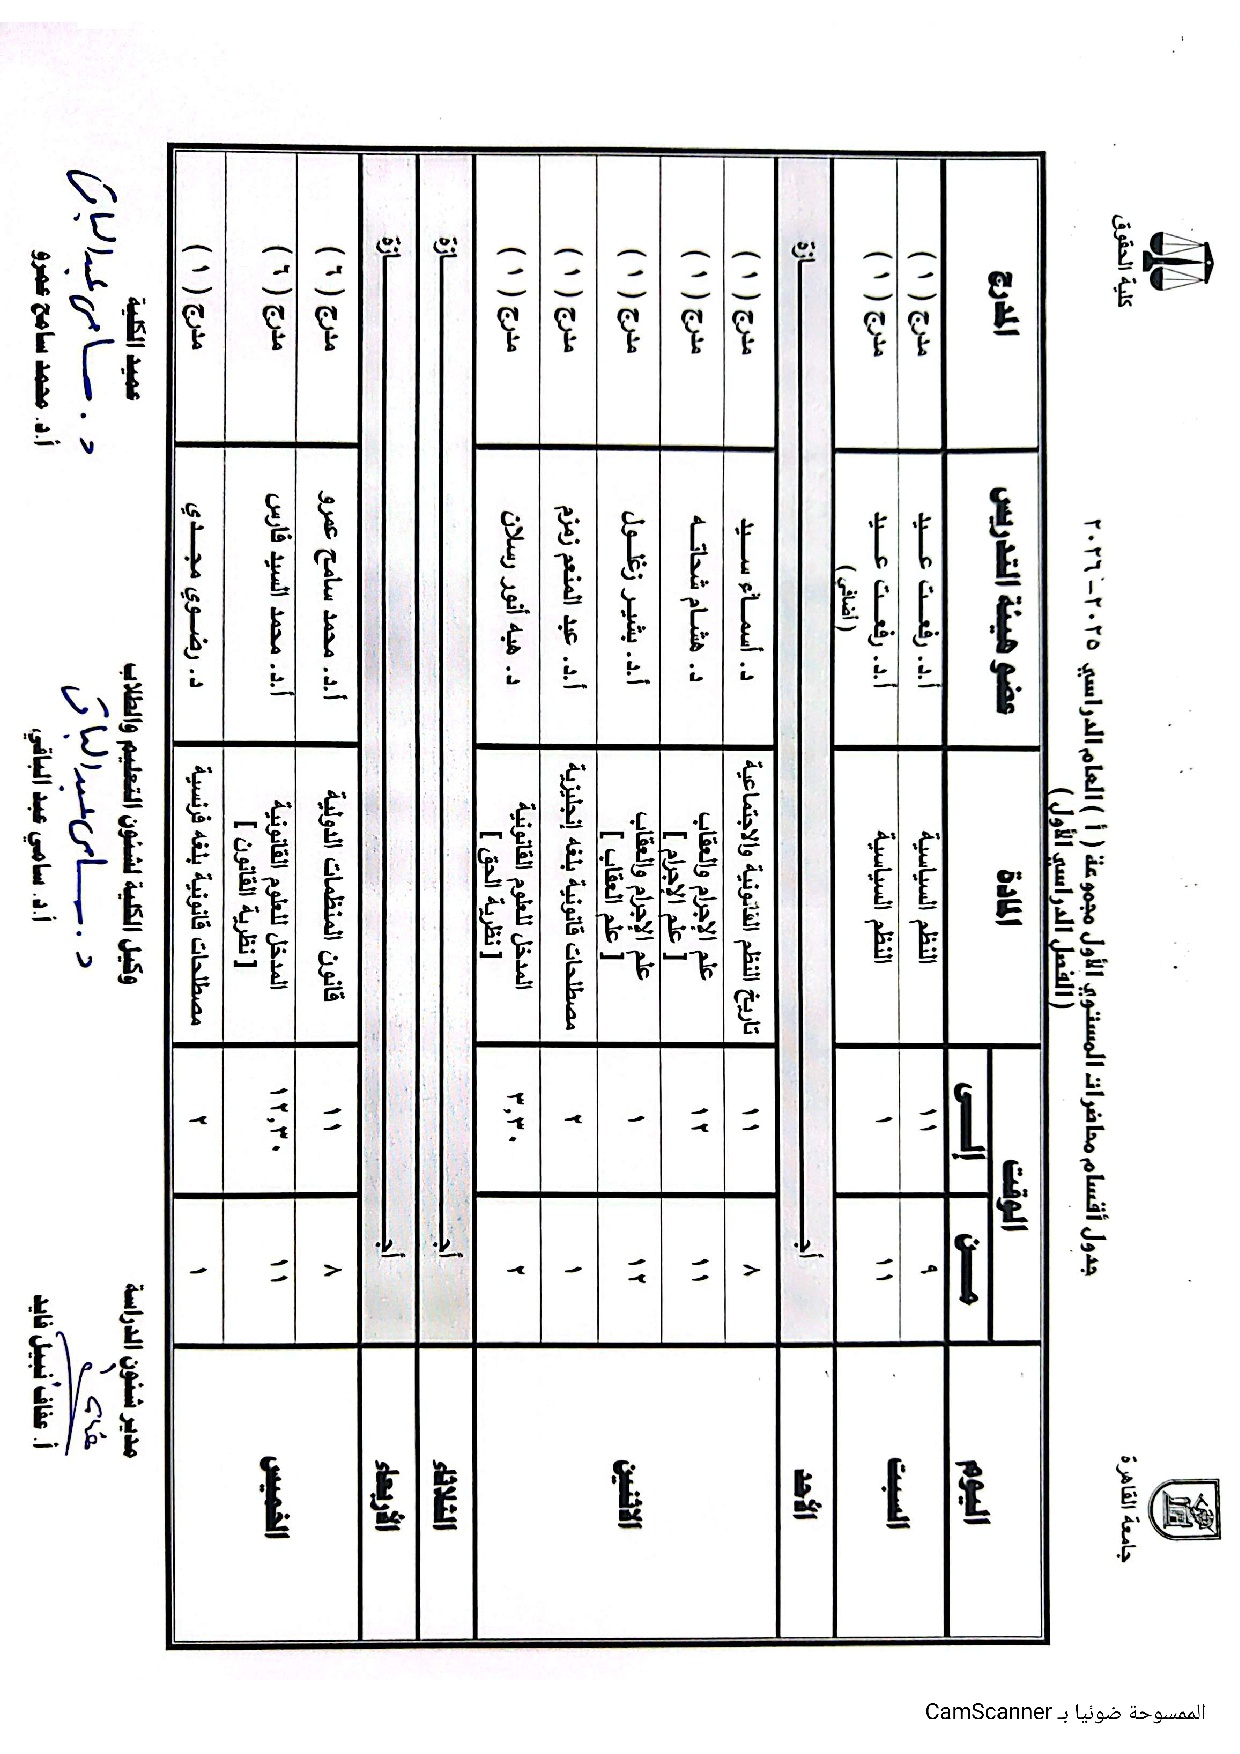 جامعة القاهرة
كلية الحقوق
جدول أقسام محاضرات المستوي الأول مجموعة ( أ ) العام الدراسي ٢٠٢٥ - ٢٠٢٦
( الفصل الدراسي الأول )
اليوم الوقت المادة عضو هيئة التدريس المدرج
مــن إلــى
السبت ٩ ١١ النظم السياسية أ.د. رفعـت عـيد مدرج ( ١ )
١١ ١ النظم السياسية أ.د. رفعـت عـيد مدرج ( ١ )
( أضافي )
الأحد أجـــازة
الاثنين ٨ ١١ تاريخ النظم القانونية والاجتماعية د. أسمـاء سـيد مدرج ( ١ )
١١ ١٢ علم الإجرام والعقاب د. هشـام شحاتـه مدرج ( ١ )
[ علم الإجرام ]
١٢ ١ علم الإجرام والعقاب أ.د. بشيـر زغلـول مدرج ( ١ )
[ علم العقاب ]
١ ٢ مصطلحات قانونية بلغه إنجليزية أ.د. عبد المنعم زمزم مدرج ( ١ )
٢ ٣,٣٠ المدخل للعلوم القانونية د. هبه أنور رسلان مدرج ( ١ )
[ نظرية الحق ]
الثلاثاء أجـــازة
الأربعاء أجـــازة
الخميس ٨ ١١ قانون المنظمات الدولية أ.د. محمد سامح عمرو مدرج ( ٦ )
١١ ١٢,٣٠ المدخل للعلوم القانونية أ.د. محمد السيد فارس مدرج ( ٦ )
[ نظرية القانون ]
١ ٢ مصطلحات قانونية بلغه فرنسية د. رضـوي مجـدي مدرج ( ١ )
مدير شئون الدراسة وكيل الكلية لشئون التعليم والطلاب عميد الكلية
د. سامي عبدالباقي د. سامي عبدالباقي
أ. عفاف نبيل فايد أ.د. سامي عبد الباقي أ.د. محمد سامح عمرو
الممسوحة ضوئيا بـ CamScanner